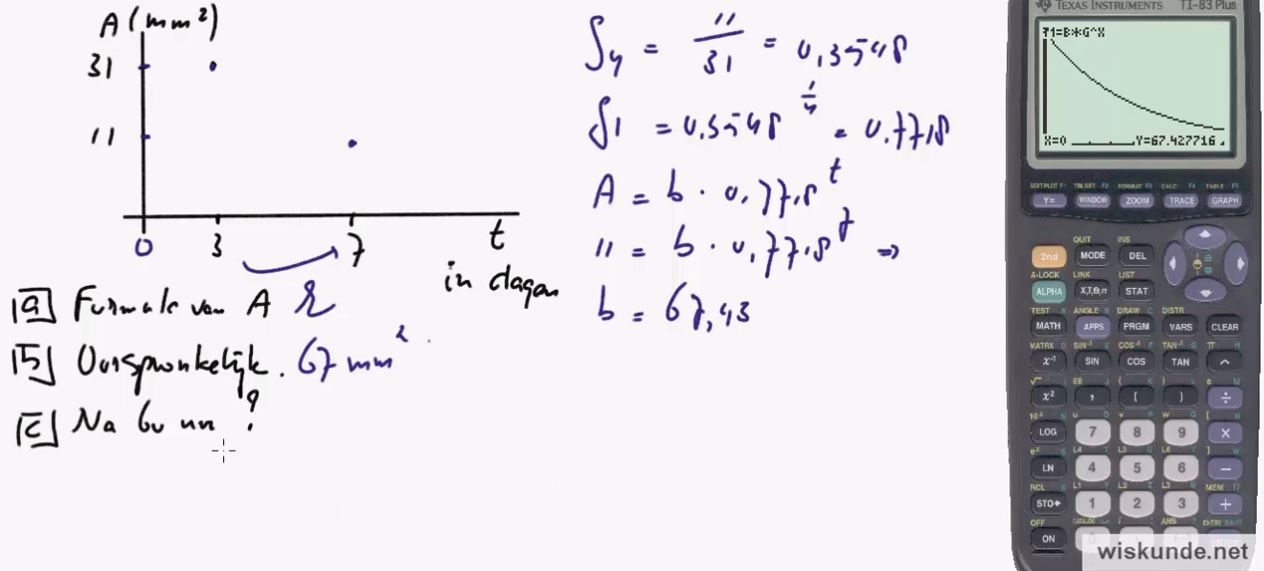 A (mm²)
31
11
0 3 7 t
in dagen
a Formule van A
b Oorspronkelijk. 67 mm²
c Na 60 uur?
g4 = 11/31 = 0,3548
g1 = 0,3548^1/4 = 0,7718
A = b · 0,7718^t
11 = b · 0,7718^7 ⇒
b = 67,43
TEXAS INSTRUMENTS TI-83 Plus
Y1=B*G^X
X=0 Y=67.427716
STATPLOT F1 TBLSET F2 FORMAT F3 CALC F4 TABLE F5
Y= WINDOW ZOOM TRACE GRAPH
QUIT INS
2nd MODE DEL
A-LOCK LINK LIST
ALPHA X,T,θ,n STAT
TEST A ANGLE B DRAW C DISTR
MATH APPS PRGM VARS CLEAR
MATRX D SIN⁻¹ E COS⁻¹ F TAN⁻¹ G π H
x⁻¹ SIN COS TAN ^
x² , ( ) ÷
LOG 7 8 9 ×
LN 4 5 6 −
RCL X L1 Y L2 Z L3 MEM
STO▸ 1 2 3 +
OFF
ON
wiskunde.net